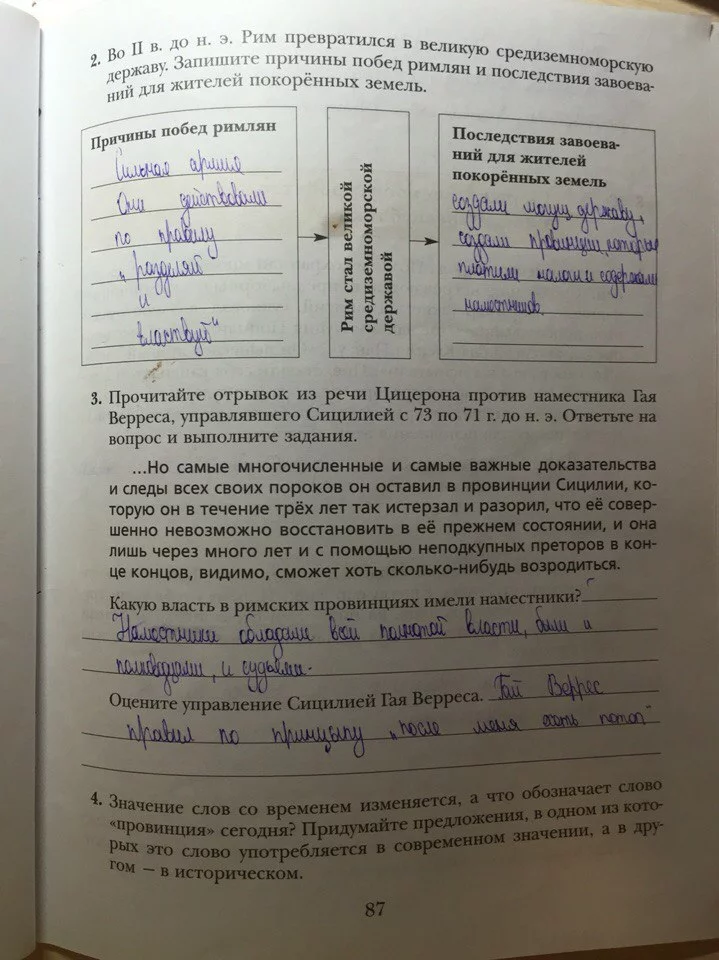 2. Во II в. до н. э. Рим превратился в великую средиземноморскую
державу. Запишите причины побед римлян и последствия завоева-
ний для жителей покорённых земель.
Причины побед римлян
Сильная армия
Они действовали
по правилу
„разделяй
и
властвуй"
Рим стал великой
средиземноморской
державой
Последствия завоева-
ний для жителей
покорённых земель
создали могущ державу,
создали провинции, которые
платили налоги и содержали
наместников.
3. Прочитайте отрывок из речи Цицерона против наместника Гая
Верреса, управлявшего Сицилией с 73 по 71 г. до н. э. Ответьте на
вопрос и выполните задания.
...Но самые многочисленные и самые важные доказательства
и следы всех своих пороков он оставил в провинции Сицилии, ко-
торую он в течение трёх лет так истерзал и разорил, что её совер-
шенно невозможно восстановить в её прежнем состоянии, и она
лишь через много лет и с помощью неподкупных преторов в кон-
це концов, видимо, сможет хоть сколько-нибудь возродиться.
Какую власть в римских провинциях имели наместники?
Наместники обладали всей полнотой власти, были и
полководцами, и судьями.
Оцените управление Сицилией Гая Верреса. Гай Веррес
правил по принципу „после меня хоть потоп"
4. Значение слов со временем изменяется, а что обозначает слово
«провинция» сегодня? Придумайте предложения, в одном из кото-
рых это слово употребляется в современном значении, а в дру-
гом — в историческом.
87